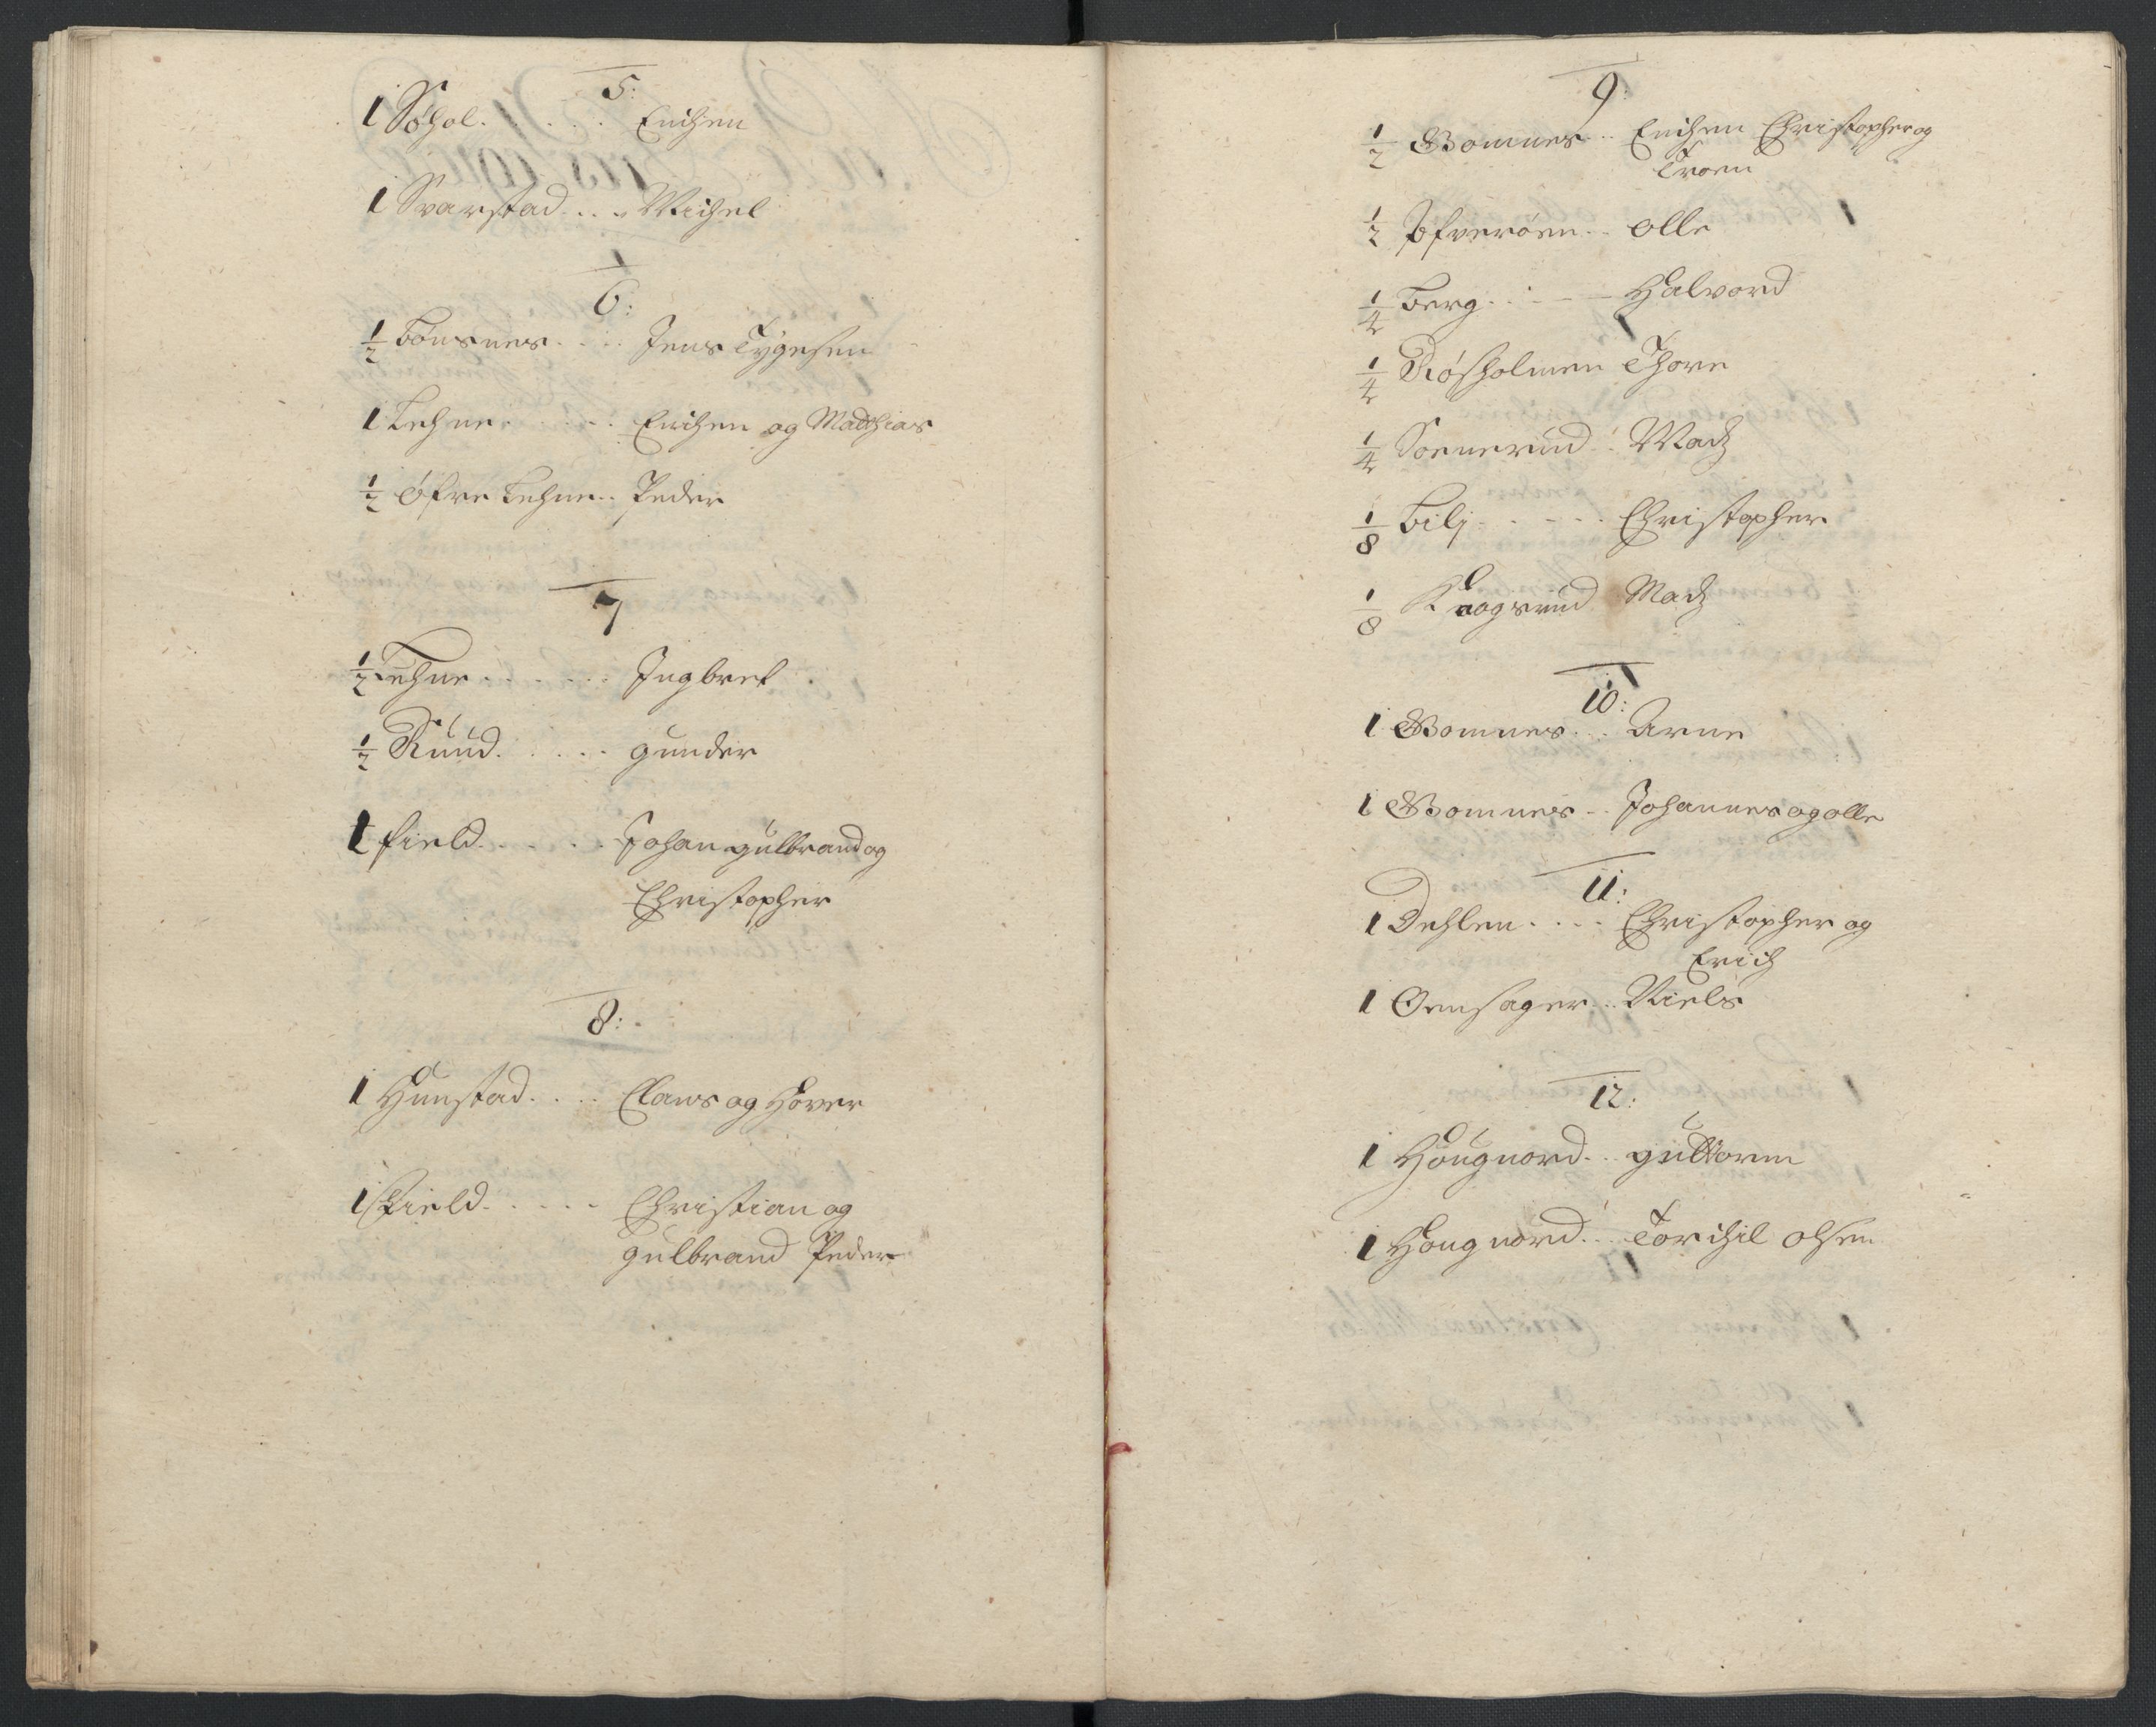 5:
1 Søhol. . . . . . Enchen
1 Svarstad. . . . Michel
6:
1/2 Bønsnes. . . . Jens Tygesen
1 Lehne. . . . . Enchen og Matthias
1/2 Øfre Lehne. . Peder
7
1/2 Lehne. . . . . . Ingbret
1/2 Ruud. . . . . gunder
1 field. . . . . Johan gulbrand og
Christopher
8:
1 Hunstad. . . . Claus og Hover
1 Field. . . . . Christian og
gulbrand Peder
9:
1/2 Gomnes. . Enchen Christopher og
Troen
1/2 . . olle
1/4 Berg. . . . Halvord
1/4 Røsholmen Thore
1/4 Sonerud . Madz
1/8 Bili. . . . . Christopher
1/8 Kragsrud Madz
10:
1 Gomnes. . . Arne
1 Gomnes. . Johannes og olle
11:
1 Dehlen. . . . Christopher og
Erich
1 Onsager. . Niels
12:
1 Hougnord. . guttorm
1 Hougnord. . Torchil olsen